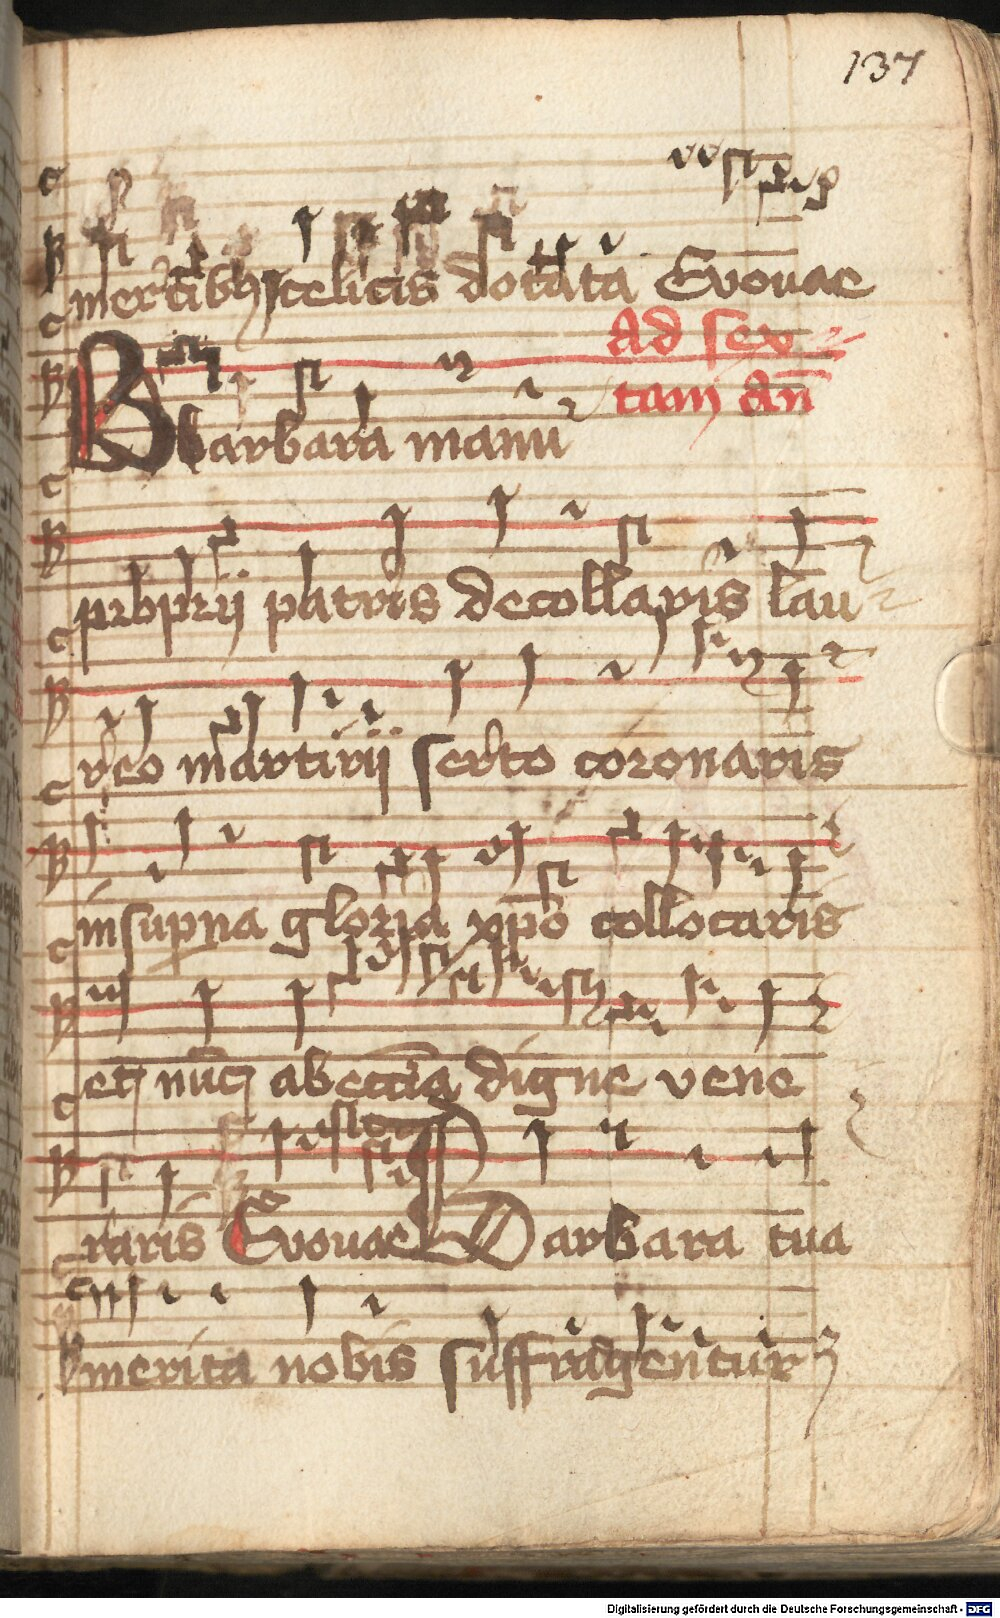 137
meritibus celicis dotata Evovae
Ad sex
Barbara manu
tam an̄
proprij patris decollaris lau
reo martirij serto coronaris
in superna gloria xp̄o collocaris
et nūc ab eccīa digne vene
raris Evovae Barbara tua
merita nobis suffragentur
Digitalisierung gefördert durch die Deutsche Forschungsgemeinschaft - DFG